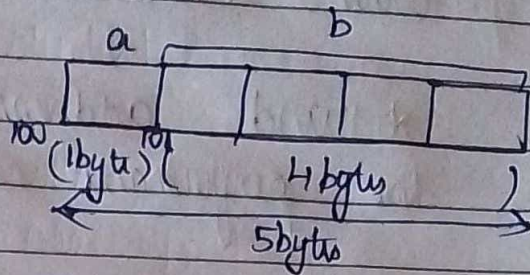 a b
100 101
(1byte) ( 4bytes )
5bytes